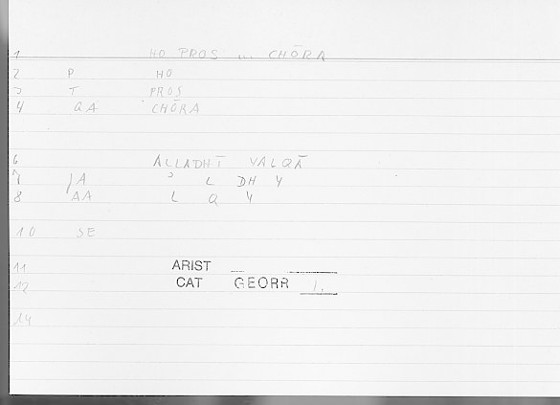 1 HO PROS ... CHŌRA
2 P HO
3 T PROS
4 QA CHŌRA
6 ALLADHĪ YALQĀ
7 JA ʾ L DH Y
8 AA L Q Y
10 SE
11 ARIST
12 CAT GEORR 1,
14